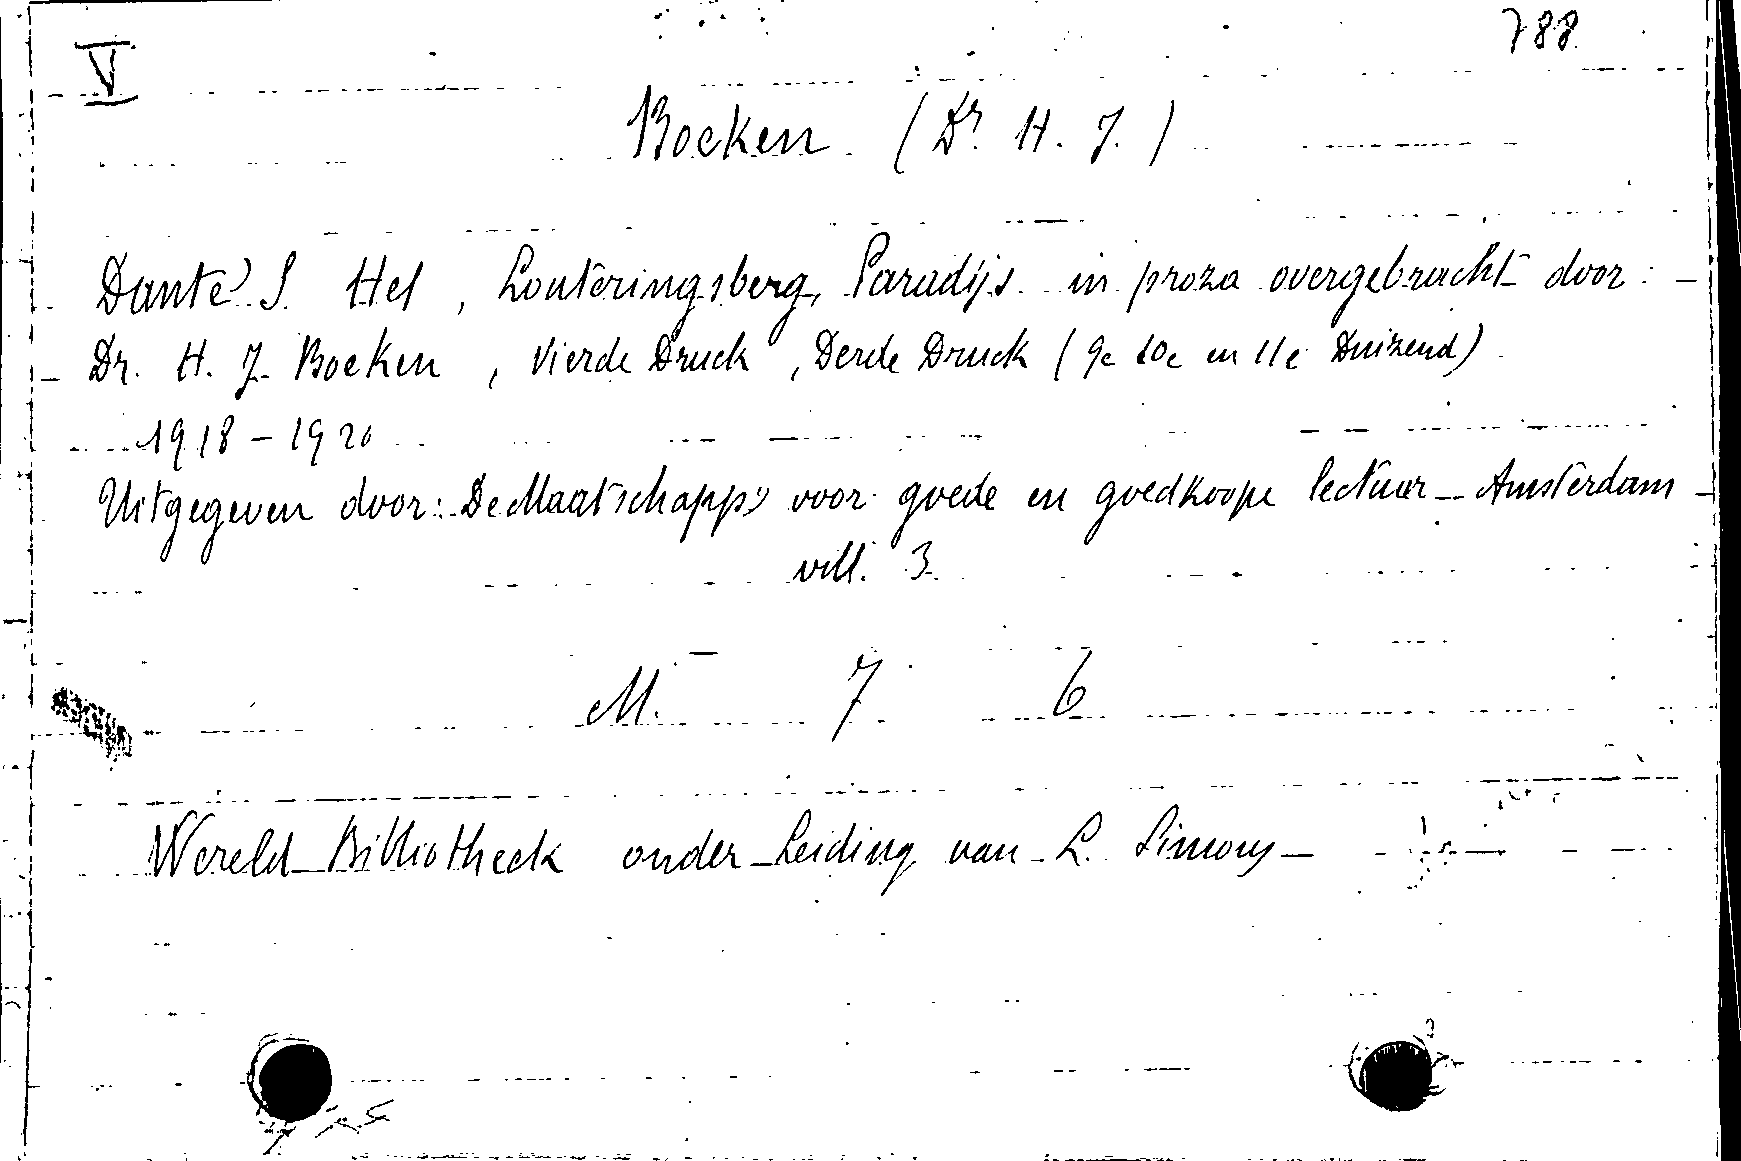 V
788
Boeken (Dr. H. J.)
Dante's Hel, Louteringsberg, Paradijs in proza overgebracht door:
Dr. H. J. Boeken, Vierde Druck, Derde Druck (9e 10e en 11e Duizend)
1918 - 1920
Uitgegeven door: De Maatschappy voor goede en goedkoope lectuur - Amsterdam
vill. 3
M. 7 6
Wereld Bibliotheek onder Leiding van L. Simons